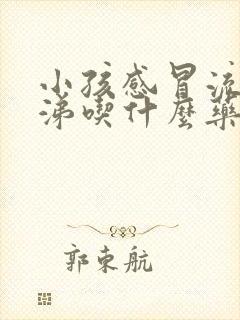 小孩感冒流
涕喫什麼藥
郭東航